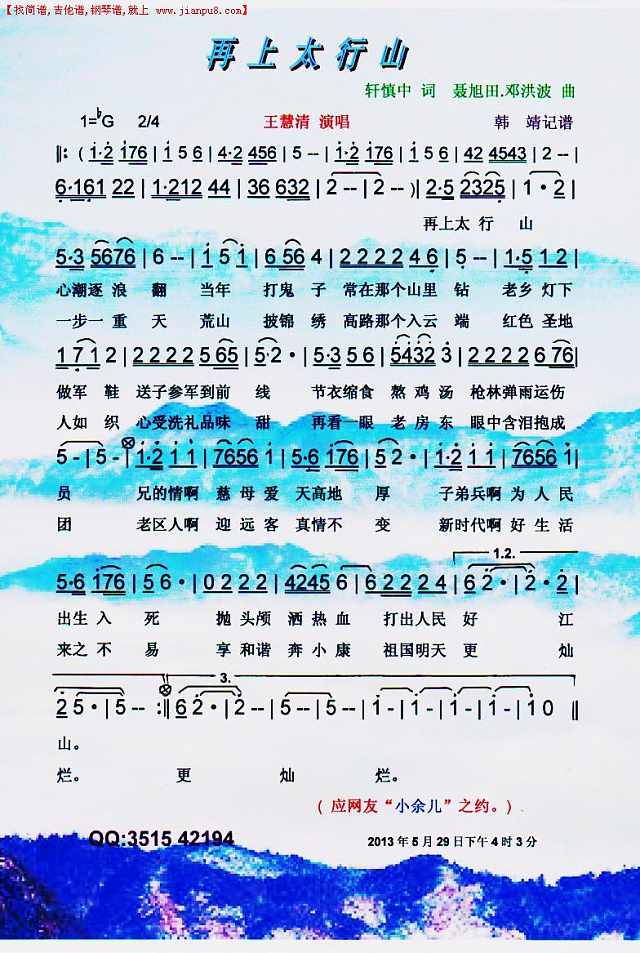 【找简谱,吉他谱,钢琴谱,就上 www.jianpu8.com】
再上太行山
轩慎中 词 聂旭田.邓洪波 曲
1=♭G 2/4 王慧清 演唱 韩 靖记谱
‖: ( 1·2 176 | 1 5 6 | 4·2 456 | 5 -- | 1·2 176 | 1 5 6 | 42 4543 | 2 -- |
6·161 22 | 1·212 44 | 36 632 | 2 -- | 2 -- )| 2·5 2325 | 1 · 2 |
再上太 行 山
5·3 5676 | 6 -- | 1 5 1 | 6 56 4 | 2 2 2 2 4 6 | 5 -- | 1·5 1 2 |
心潮逐 浪 翻 当年 打鬼 子 常在那个山里 钻 老乡 灯下
一步一 重 天 荒山 披锦 绣 高路那个入云 端 红色 圣地
1 7 1 2 | 2 2 2 2 5 65 | 5·2 · | 5·3 5 6 | 5432 3 | 2 2 2 2 6 76 |
做军 鞋 送子参军到前 线 节衣缩食 熬 鸡 汤 枪林弹雨运伤
人如 织 心受洗礼品味 甜 再看一眼 老 房 东 眼中含泪抱成
5 - | 5 -- | 1·2 1 1 | 7656 5 1 | 5·6 176 | 5 2 · | 1·2 1 1 | 7656 5 1 |
员 兄的情啊 慈 母 爱 天高地 厚 子弟兵啊 为 人 民
团 老区人啊 迎 远 客 真情不 变 新时代啊 好 生 活
1.2.
5·6 176 | 5 6 · | 0 2 2 2 | 4245 6 | 6 2 2 2 4 | 6 2 · | 2 · 5 |
出生 入 死 抛 头颅 洒 热 血 打出人民 好 江
来之 不 易 享 和谐 奔 小 康 祖国明天 更 灿
3.
2 5 · | 5 -- :‖ 6 2 · | 2 -- | 5 -- | 5 -- | 1 - | 1 - | 1 - | 1 - | 1 0 ‖
山。
烂。 更 灿 烂。
( 应网友“小余儿”之约。)
QQ:3515 42194
2013 年 5 月 29 日下午 4 时 3 分